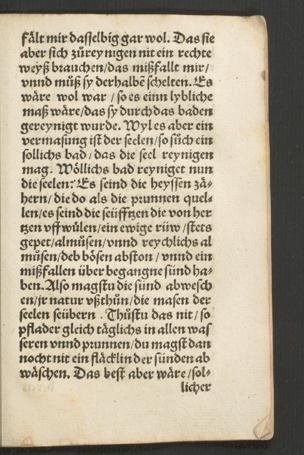 fält mir dasselbig gar wol. Das sie
aber sich zůreynigen nit ein rechte
weyß brauchen/das mißfallt mir/
vnnd můß sy derhalbē schelten. Es
wäre wol war / so es einn lybliche
maß wäre/das sy durch das baden
gereynigt wurde. Wyl es aber ein
vermasung ist der seelen/so sůch ein
sollichs bad / das die seel reynigen
mag. Wöllichs bad reyniget nun
die seelen: Es seind die heyssen zä-
hern/die do als die prunnen quel-
len/es seind die seüfftzen die von her
tzen vff wůlen/ein ewige rüw /stets
gepet/almůsen/vnnd reychlichs al
můsen/deb bösen abston / vnnd ein
mißfallen über begangne sünd ha-
ben. Also magstu die sünd abwesch
en/jr natur vßthůn/die masen der
seelen seübern . Thůstu das nit / so
pflader gleich täglichs in allen was
seren vnnd prunnen/du magst dan
nocht nit ein fläcklin der sünden ab
wäschen. Das best aber wäre /sol-
licher